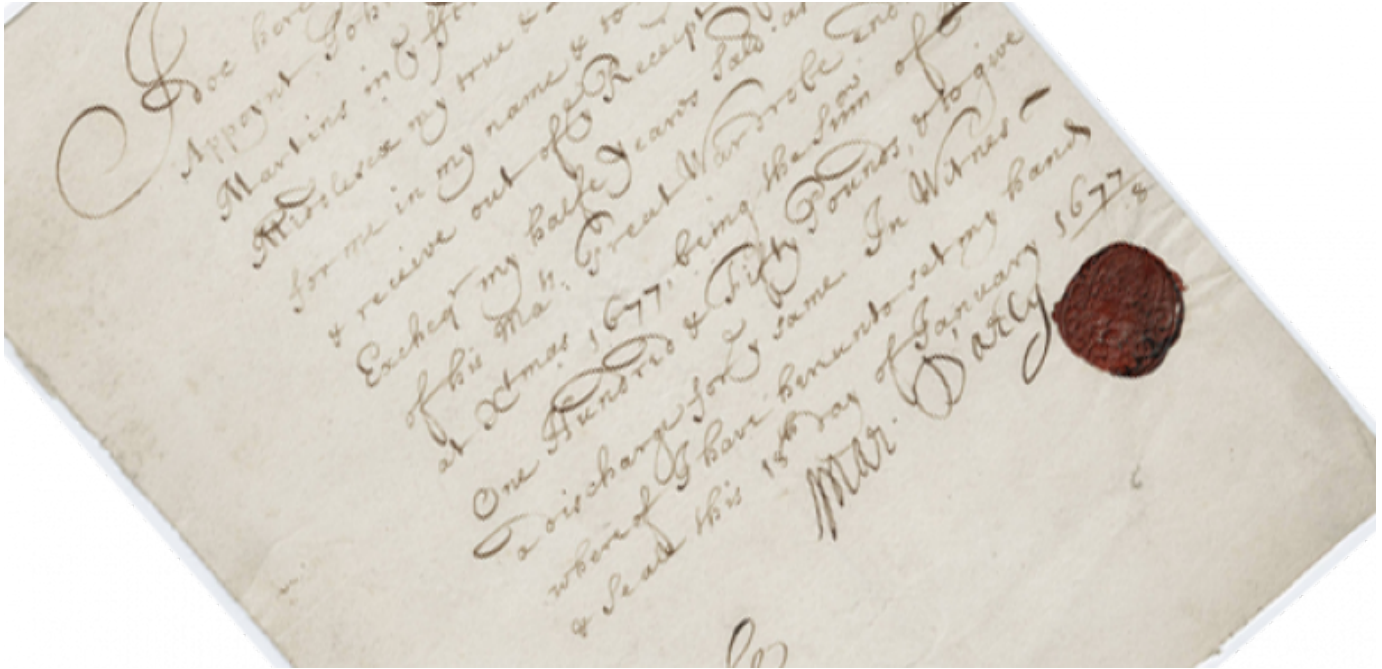 I doe here
Appoynt John
Martins in ye ffe
Middlesex my true &
for me in my name & to
& receive out of ye Receipt
Excheqr my halfe Years Sal:
of his Mats. Great Wardrobe End
at Xtmas 1677, being the Sum of
One Hundrid & Fifty Pounds, & to give
a discharge for ye same. In Witnes
whereof I have hereunto set my hand
& Seale this 15th day of January 1677/8
Mar. Darcy